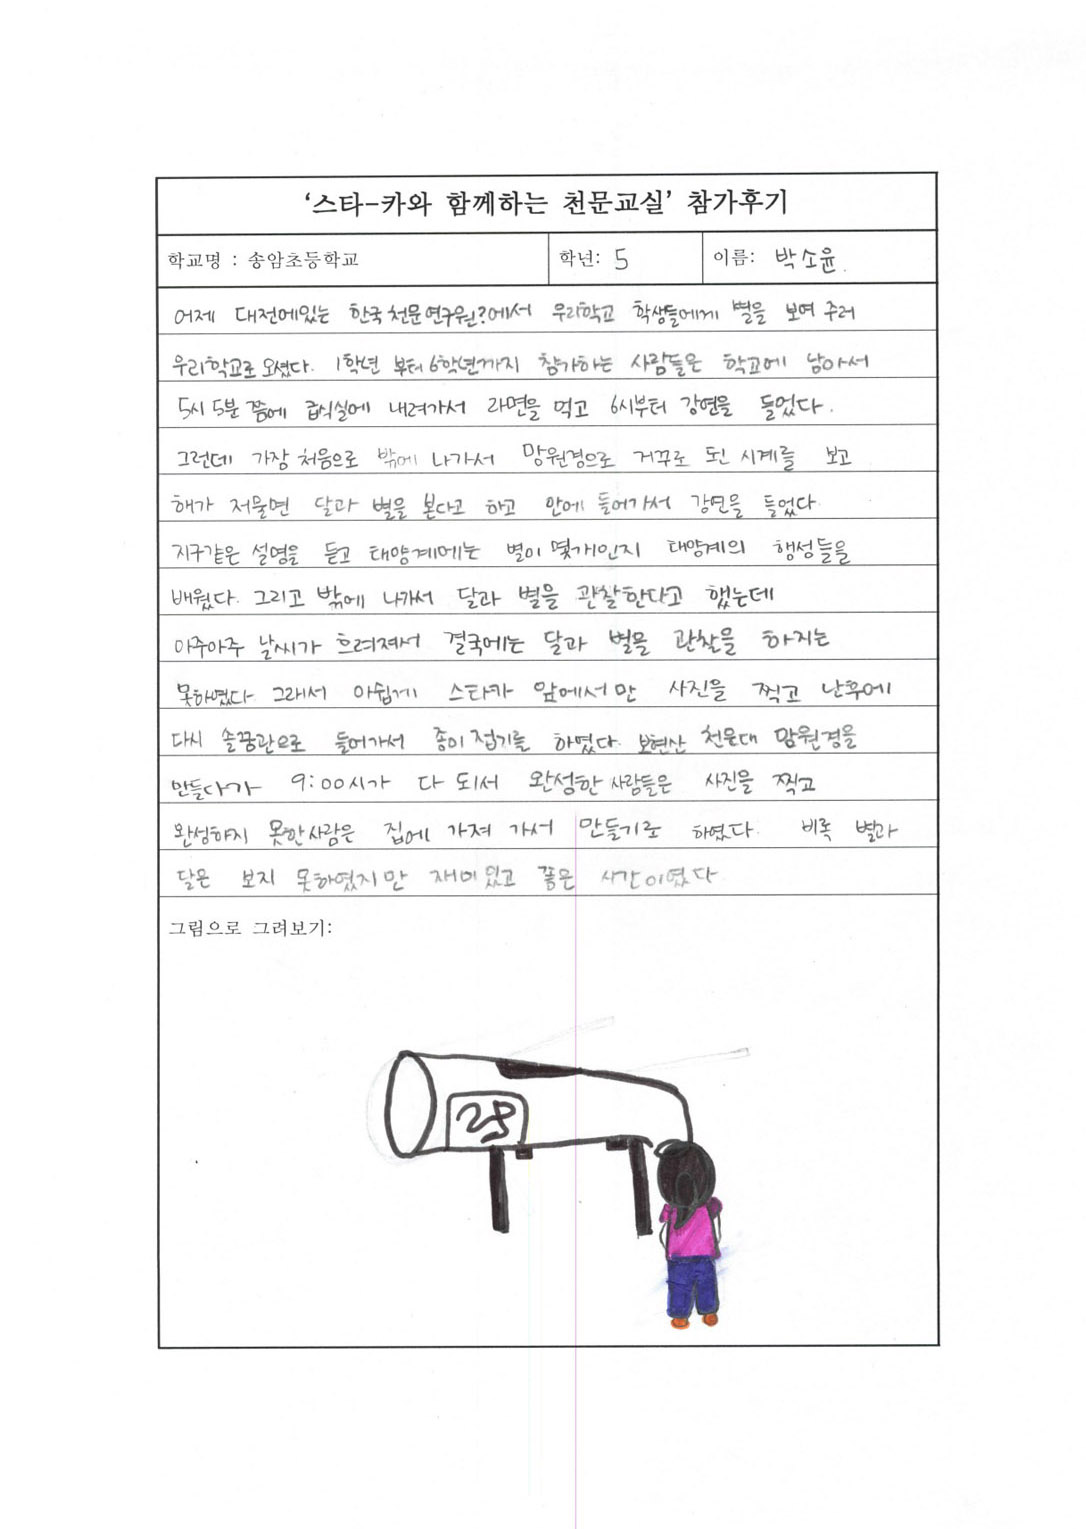 '스타-카와 함께하는 천문교실' 참가후기
학교명 : 송암초등학교 학년: 5 이름: 박소윤.
어제 대전에있는 한국천문연구원?에서 우리학교 학생들에게 별을 보여 주러
우리학교로 오셨다. 1학년 부터 6학년까지 참가하는 사람들은 학교에 남아서
5시 5분 쯤에 급식실에 내려가서 라면을 먹고 6시부터 강연을 들었다.
그런데 가장 처음으로 밖에 나가서 망원경으로 거꾸로 된 시계를 보고
해가 저물면 달과 별을 본다고 하고 안에 들어가서 강연을 들었다.
지구같은 설명을 듣고 태양계에는 별이 몇개인지 태양계의 행성들을
배웠다. 그리고 밖에 나가서 달과 별을 관찰한다고 했는데
아주아주 날씨가 흐려져서 결국에는 달과 별을 관찰을 하지는
못하였다. 그래서 아쉽게 스타카 앞에서만 사진을 찍고 난후에
다시 솔꿈관으로 들어가서 종이접기를 하였다. 보현산 천문대 망원경을
만들다가 9:00시가 다 되서 완성한 사람들은 사진을 찍고
완성하지 못한사람은 집에 가져 가서 만들기로 하였다. 비록 별과
달은 보지 못하였지만 재미있고 좋은 시간이였다
그림으로 그려보기: